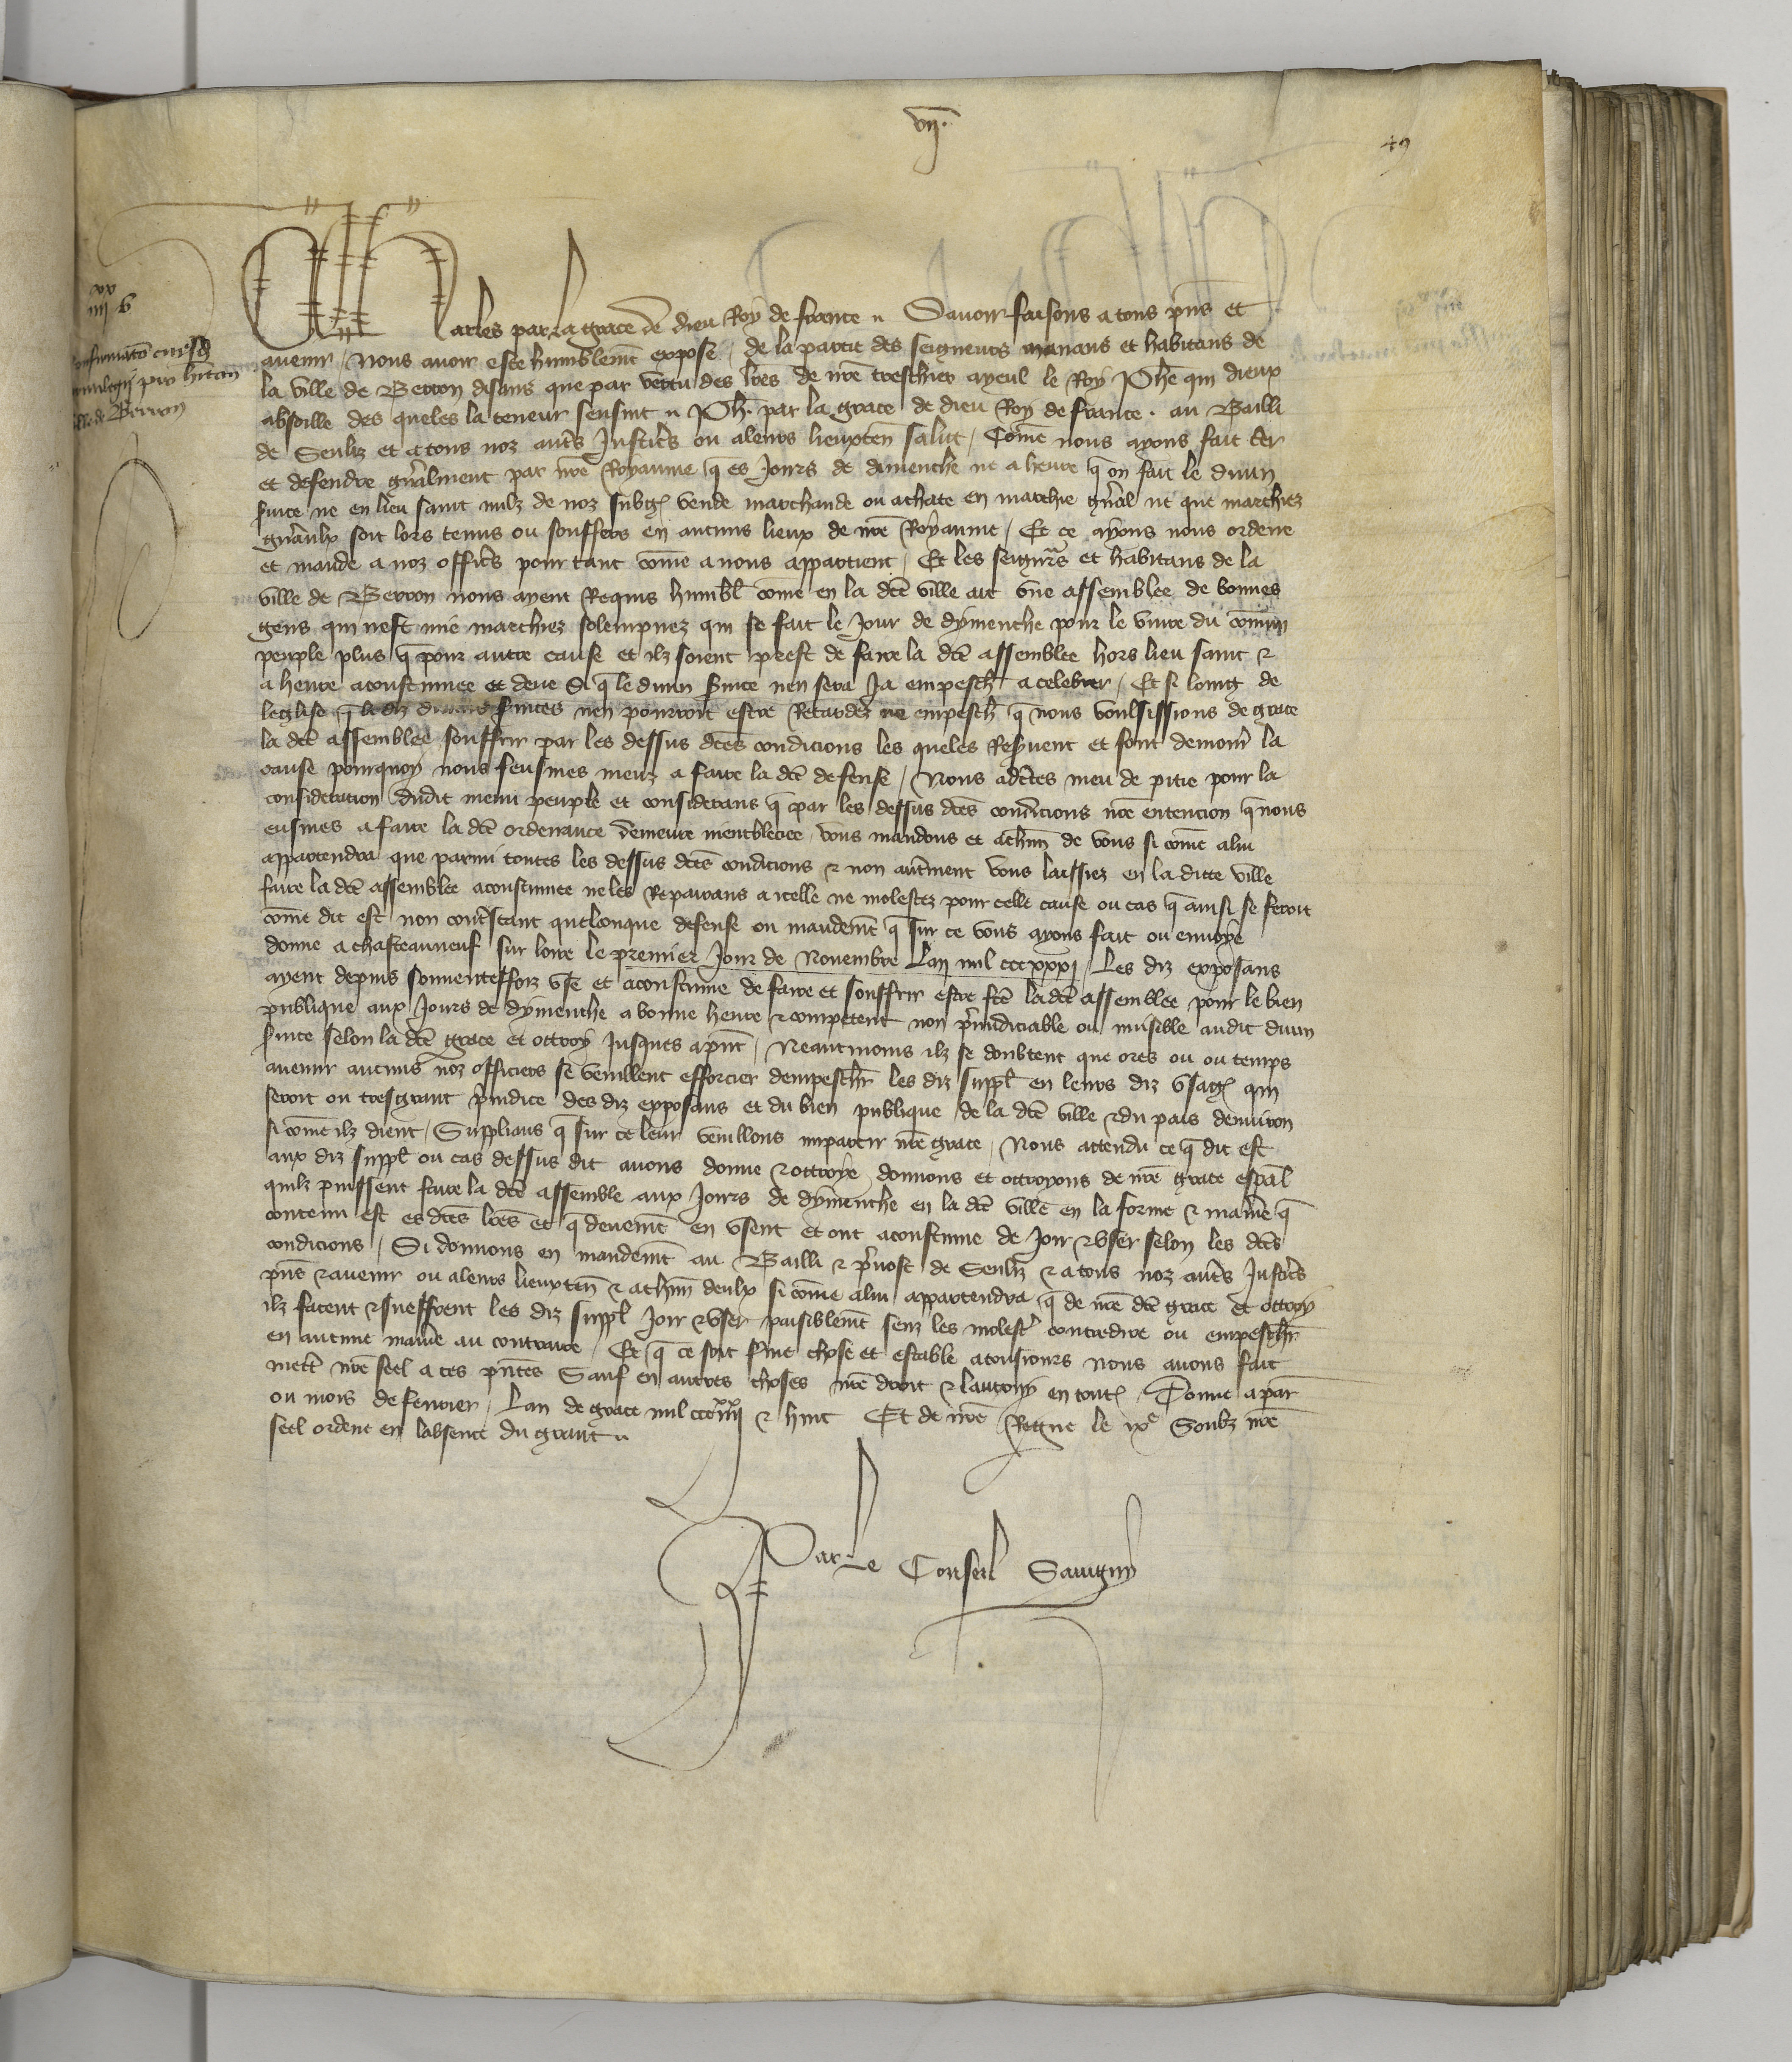 vij.
49
xx
iiij 6
Charles par la grace de dieu Roy de france. Savoir faisons a tous pñs et
avenir / Nous avoir este humblemt expose / de la partie des seigneurs manans et habitans de
la ville de Berron disans que par vertu des lres de nre treschier ayeul le Roy Phe qui dieux
absoille des queles la teneur sensuit. Ph. par la grace de dieu Roy de france. au Bailli
de Senliz et a tous noz autres Justiciers ou a leurs lieuxten salut / Come nous ayons fait
et defendre gñralment par nre Royaume q es Jours de dimenche ne a heure q on fait le divin
svice ne en lieu saint nulz de noz subgez vende marchande ou achate en marchie gñral ne que marchiez
gñraulx soit lors tenus ou souffers en aucuns lieux de nre Royaume / Et ce ayons nous ordene
et mande a noz officrs pour tant come a nous appartient / Et les seignrs et habitans de la
ville de Berron nous ayent Requis humbl come en la dce ville ait une assemblee de bonnes
gens qui nest mie marchiez solempnez qui se fait le Jour de dymenche pour le vivre du comun
peuple plus q pour autre cause et ilz soient prest de faire la dce assemblee hors lieu saint &
a heure acoustumee et deue Si q le divin svice nen sera Ja empesch a celebrer / Et si loing de
leglise q le diz divins svices nen pourroit estre Retardez ne empesch q nous voulsissions de grace
la dce assemblee souffrir par les dessus dces condicions les queles
cause pourquoy nous feusmes meuz a faire la dce defense / Nous adctes meu de pitie pour la
consideracion dudit menu peuple et considerans q par les dessus dces condicions nre entencion q nous
eusmes a faire la dce ordenance demeure nient bleciee vous mandons et a chun de vous si come a lui
appartendra que parmi toutes les dessus dces condicions & non autrement vous laissiez en la dicte ville
faire la dce assemblee acoustumee ne les Repairans a icelle ne molestez pour celle cause ou cas q ainsi se feroit
come dit est non contrstant quelconque defense ou mandemt q sur ce vous ayons fait ou envoye
donne a chasteauneuf sur loire le premier Jour de Novembre Lan mil cccxxxj / Les diz exposans
ayent depuis souventeffoiz use et acoustume de faire et souffrir estre fce la dce assemblee pour le bien
publique aux Jours de dymenche a bonne heure & competent non preiudiciable ou nuisible audit divin
svice selon la dce grace et ottroy Jusques apnt / Neantmoins ilz se doubtent que ores ou ou temps
avenir aucuns noz officiers se veuillent efforcier dempeschr les diz suppl en leurs diz usages qui
seroit ou tresgrant preiudice des diz exposans et du bien publique de la dce ville & du pais denviron
si come ilz dient / Supplians q sur ce leur veuillons impartir nre grace / Nous attendu ce q dit est
aux diz suppl ou cas dessus dit avons donne & ottroye donnons et ottroyons de nre grace espal
quilz puissent faire la dce assemble aux Jours de dymenche en la dce ville en la forme & maniere q
contenu est es dces lres et q deuemt en usent et ont acoustume de Joir & user selon les dces
condicions / Si donnons en mandemt au Bailli & prevost de Senliz & a tous noz autres Justicrs
pñs & avenir ou a leurs lieuxten & a chun deulx si come a lui appartendra q de nre dce grace et ottroy
ilz facent & sueffrent les diz suppl Joir & user paisiblemt senz les molestr contredire ou empeschr
en aucune maniere au contraire / Et q ce soit fme chose et estable a tousiours nous avons fait
mett nre seel a ces pñtes Sauf en autres choses nre droit & lautruy en toutes. Donne a par
ou mois de fevrier / Lan de grace mil ccciiijxx & huit Et de nre Regne le ixe Soubz nre
seel ordene en labsence du grant.
Par le Conseil Savigny